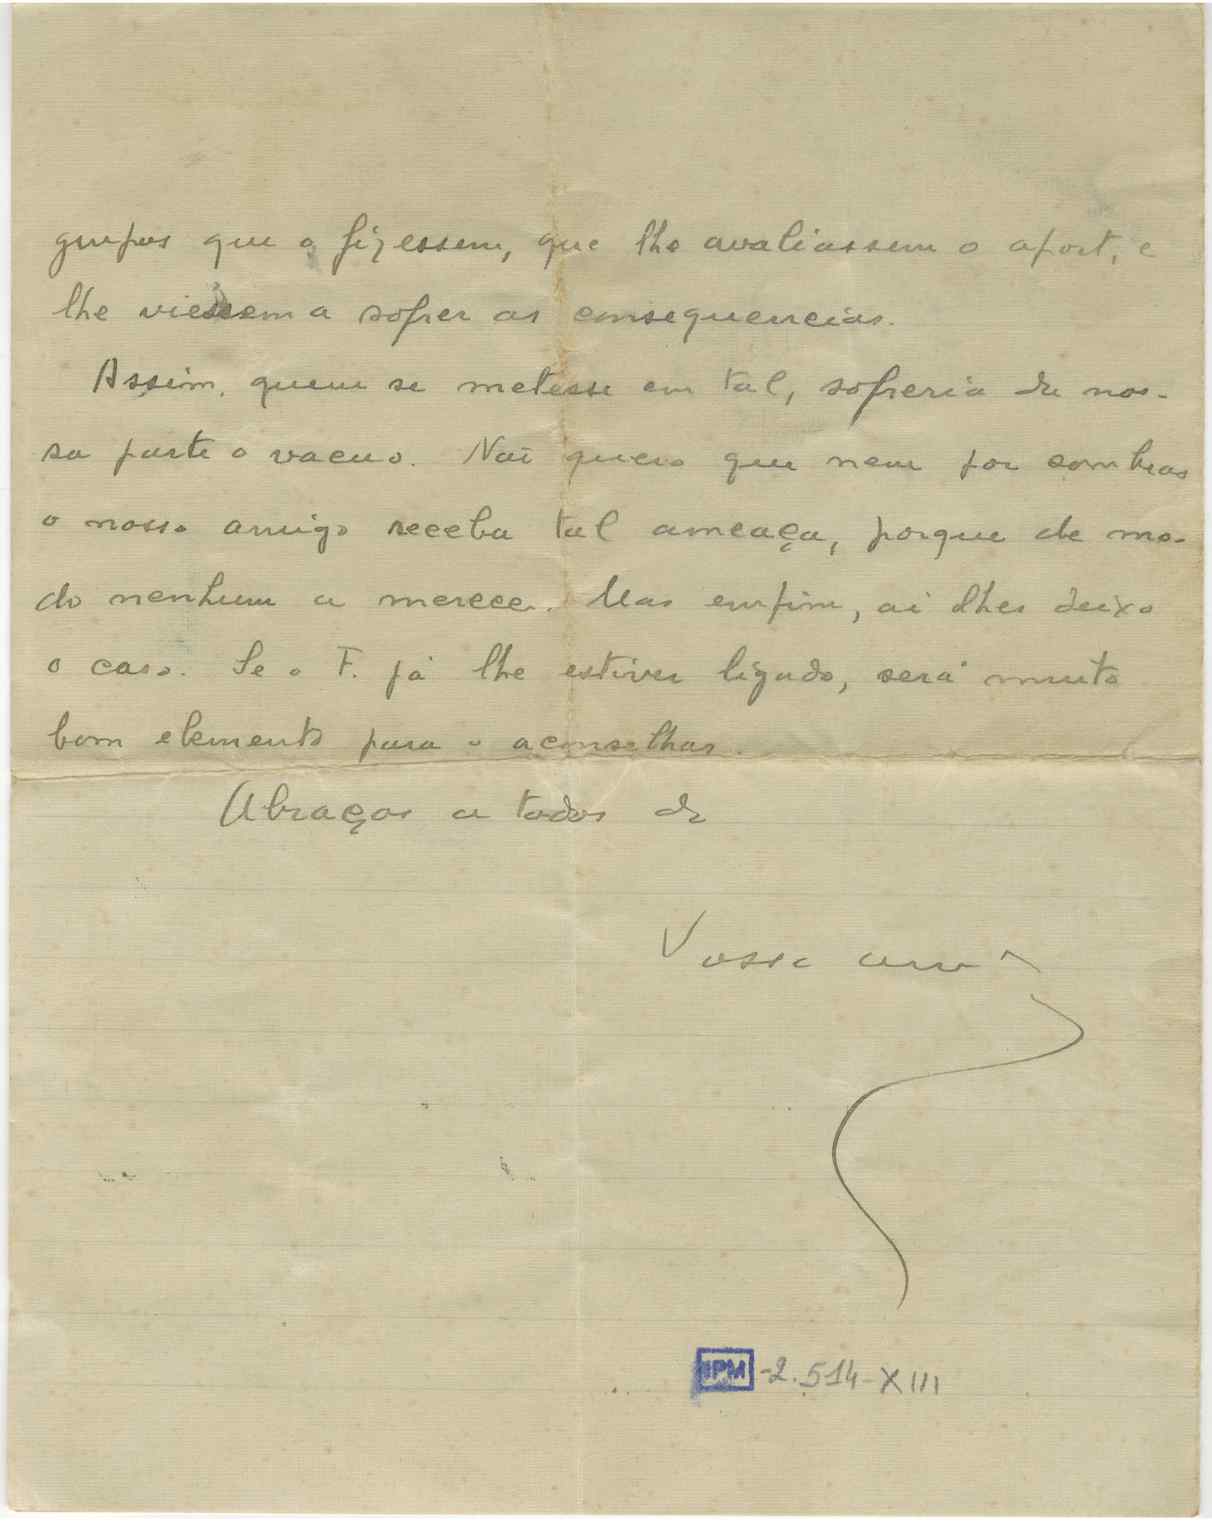 grupos que o fizessem, que lhe avaliassem o aport, e
lhe viessem a sofrer as consequencias.
Assim, quem se metesse em tal, sofreria de nos-
sa parte o vacuo. Não quero que nem por sombras
o nosso amigo receba tal ameaça, porque de mo-
do nenhum a merece. Mas emfim, ai lhes deixo
o caso. Se o F. já lhe estiver ligado, será muito
bom elemento para o aconselhar.
Abraços a todos de
Vosso
IPM -2.514-XIII